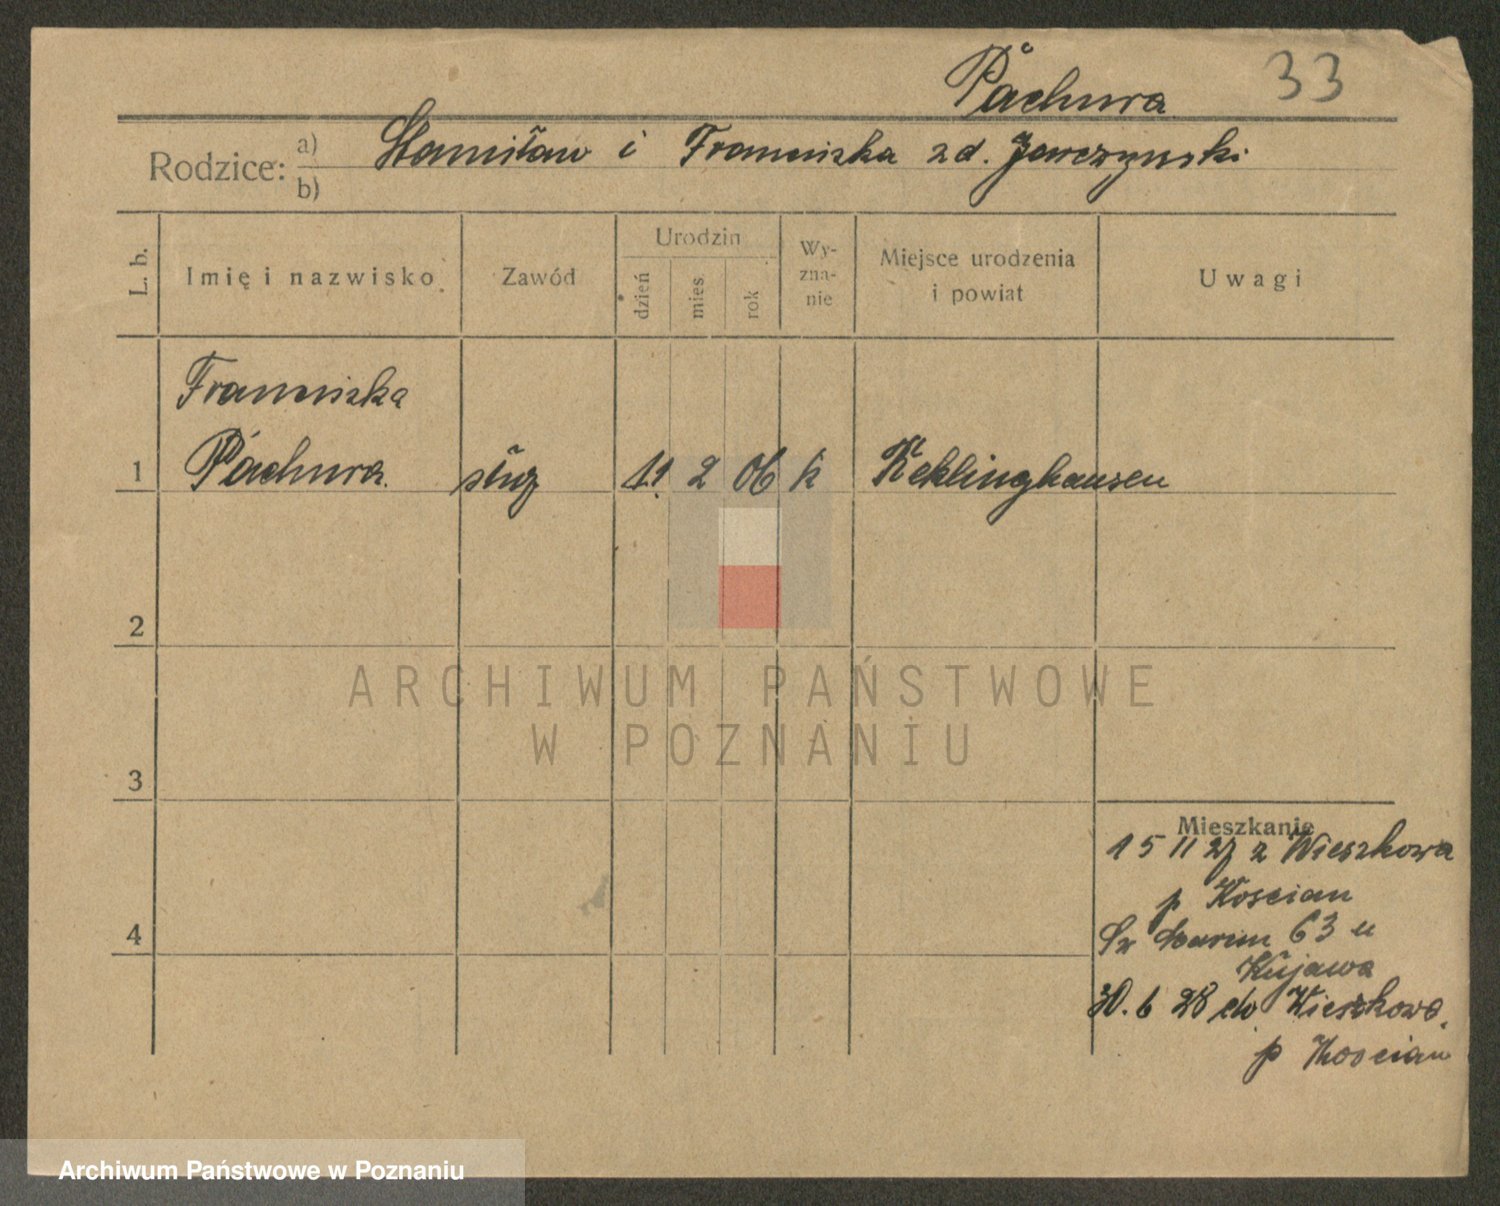 Pachura 33
Rodzice: a) Stanisław i Franciszka zd. Jarczynski
b)
L. b. Imię i nazwisko Zawód Urodzin dzień mies rok Wy-zna-nie Miejsce urodzenia i powiat Uwagi
Franciszka
1 Pachura służ 11 2 06 k Reklinghausen
2
ARCHIWUM PAŃSTWOWE
W POZNANIU
3
Mieszkanie
15 11 27 z Wieszkowa
p Koscian
4
63 u
Kujawa
30. 6 28 do Wieszkowo
p Koscian
Archiwum Państwowe w Poznaniu